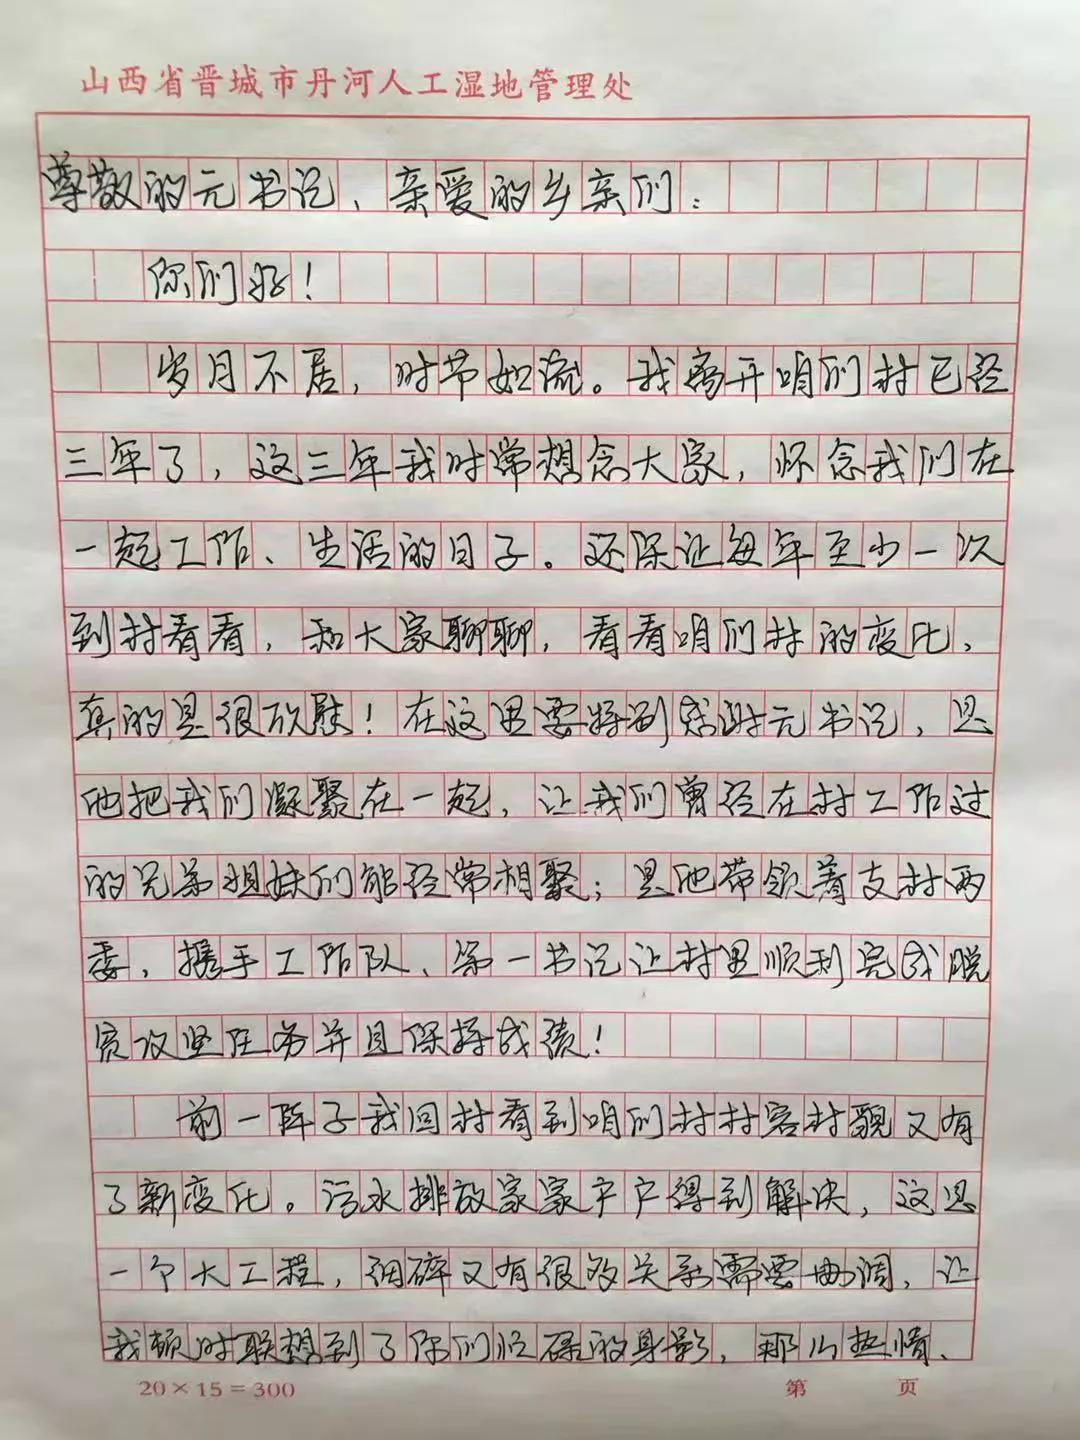 山西省晋城市丹河人工湿地管理处
尊敬的元书记、亲爱的乡亲们：
你们好！
岁月不居，时节如流。我离开咱们村已经
三年了，这三年我时常想念大家，怀念我们在
一起工作、生活的日子。还保证每年至少一次
到村看看，和大家聊聊，看看咱们村的变化，
真的是很欣慰！在这里要特别感谢元书记，是
他把我们凝聚在一起，让我们曾经在村工作过
的兄弟姐妹们能经常相聚；是他带领着支村两
委，携手工作队、第一书记让村里顺利完成脱
贫攻坚任务并且保持成绩！
前一阵子我回村看到咱们村村容村貌又有
了新变化。污水排放家家户户得到解决，这是
一个大工程，细碎又有很多关系需要协调，让
我顿时联想到了你们忙碌的身影，那么热情、
20×15=300
第 页